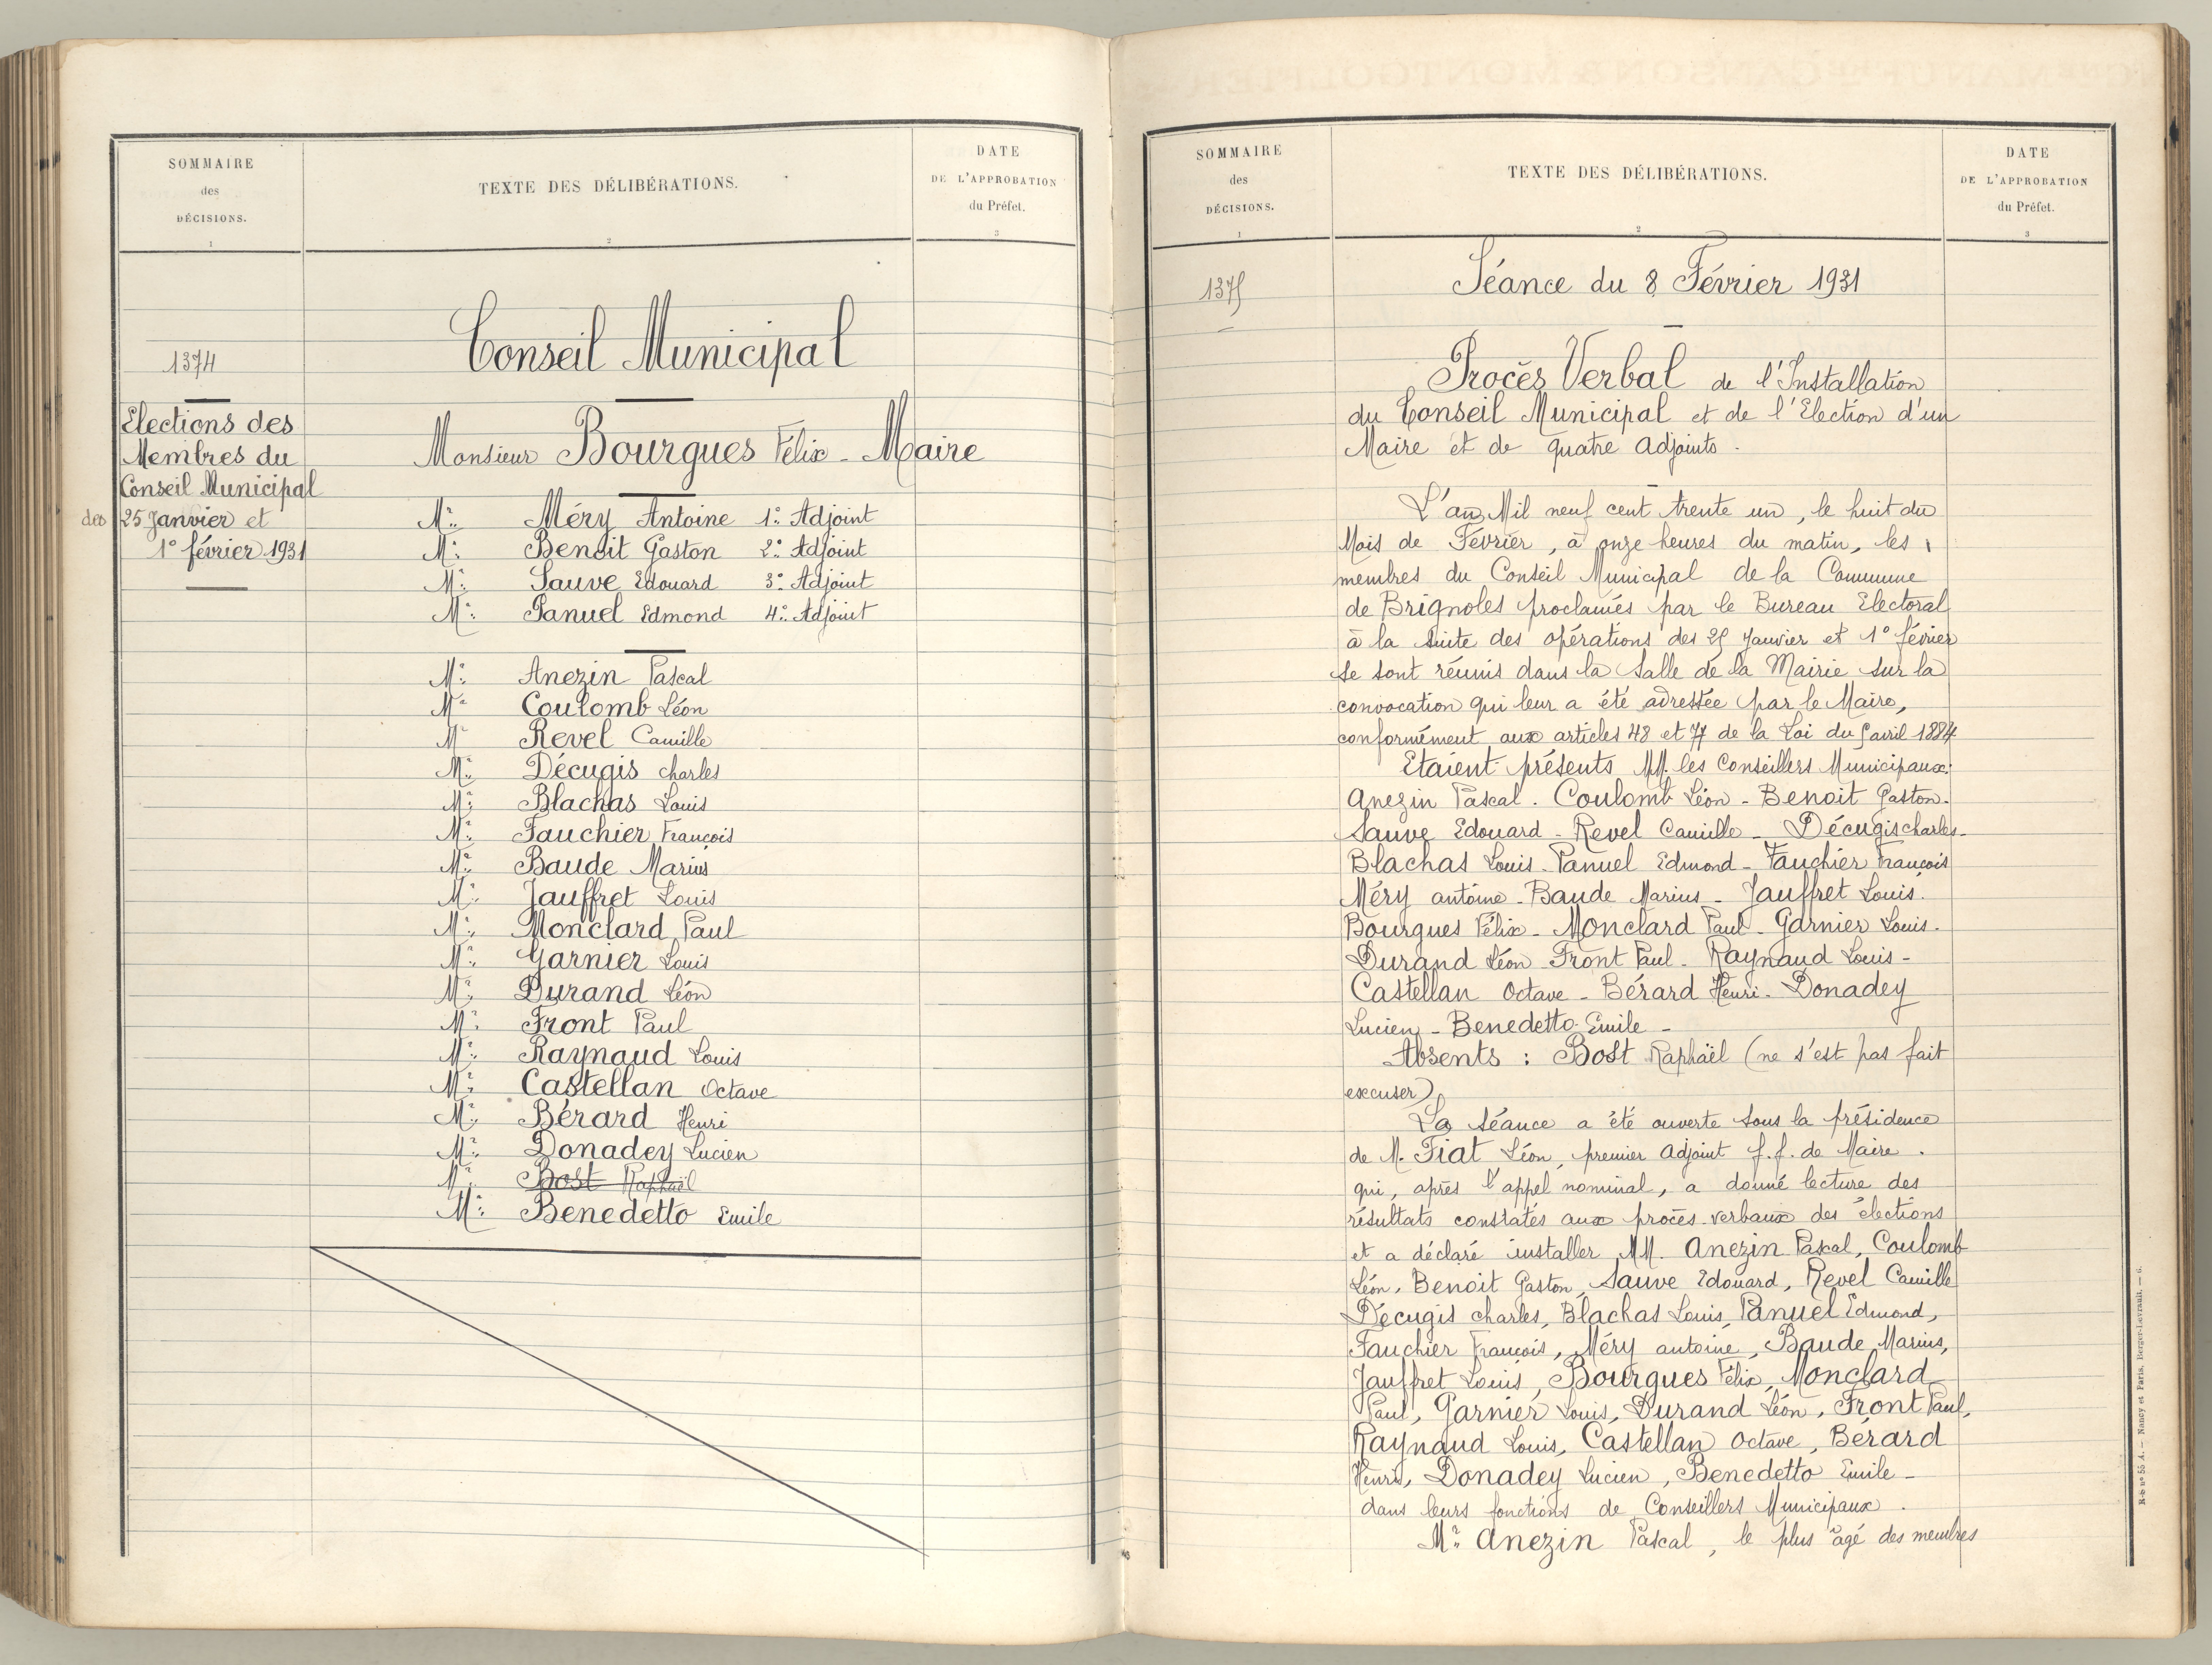 SOMMAIRE
des
DÉCISIONS.
1
TEXTE DES DÉLIBÉRATIONS.
2
DATE
DE L'APPROBATION
du Préfet.
3
1374
Elections des
Membres du
Conseil Municipal
des 25 Janvier et
1° février 1931
Conseil Municipal
Monsieur Bourgues Félix - Maire
Mr: Méry Antoine 1°: Adjoint
Mr: Benoit Gaston 2°: Adjoint
Mr: Sauve Edouard 3°: Adjoint
Mr: Panuel Edmond 4°: Adjoint
Mr: Anezin Pascal
Mr: Coulomb Léon
Mr Revel Camille
Mr: Décugis charles
Mr: Blachas Louis
Mr: Fauchier François
Mr: Baude Marius
Mr: Jauffret Louis
Mr: Monclard Paul
Mr: Garnier Louis
Mr: Durand Léon
Mr: Front Paul
Mr: Raynaud Louis
Mr: Castellan Octave
Mr: Bérard Henri
Mr: Donadey Lucien
Mr: Bost Raphaël
Mr: Benedetto Emile
SOMMAIRE
des
DÉCISIONS.
1
TEXTE DES DÉLIBÉRATIONS.
2
DATE
DE L'APPROBATION
du Préfet.
3
1375
Séance du 8 Février 1931
Procès Verbal de l'Installation
du Conseil Municipal et de l'Election d'un
Maire et de quatre adjoints.
L'an Mil neuf cent trente un, le huit du
Mois de Février, à onze heures du matin, les
membres du Conseil Municipal de la Commune
de Brignoles proclamés par le Bureau Electoral
à la suite des opérations des 25 Janvier et 1° février
se sont réunis dans la Salle de la Mairie sur la
convocation qui leur a été adressée par le Maire,
conformément aux articles 48 et 77 de la Loi du 5 avril 1884
Etaient présents MM. les Conseillers Municipaux:
Anezin Pascal. Coulomb Léon - Benoit Gaston -
Sauve Edouard - Revel Camille - Décugis charles -
Blachas Louis - Panuel Edmond - Fauchier François
Méry antoine - Baude Marius - Jauffret Louis.
Bourgues Félix - Monclard Paul - Garnier Louis.
Durand Léon - Front Paul - Raynaud Louis -
Castellan Octave - Bérard Henri - Donadey
Lucien - Benedetto Emile -
Absents : Bost Raphaël (ne s'est pas fait
excuser)
La séance a été ouverte sous la présidence
de M. Fiat Léon, premier adjoint f.f. de Maire.
qui, après l'appel nominal, a donné lecture des
résultats constatés aux procès-verbaux des élections
et a déclaré installer MM. Anezin Pascal, Coulomb
Léon, Benoit Gaston, Sauve Edouard, Revel Camille
Décugis charles, Blachas Louis, Panuel Edmond,
Fauchier François, Méry antoine, Baude Marius,
Jauffret Louis, Bourgues Félix, Monclard
Paul, Garnier Louis, Durand Léon, Front Paul,
Raynaud Louis, Castellan Octave, Bérard
Henri, Donadey Lucien, Benedetto Emile -
dans leurs fonctions de Conseillers Municipaux.
Mr: Anezin Pascal, le plus âgé des membres
R-b n° 55 A. — Nancy et Paris, Berger-Levrault. — 6.